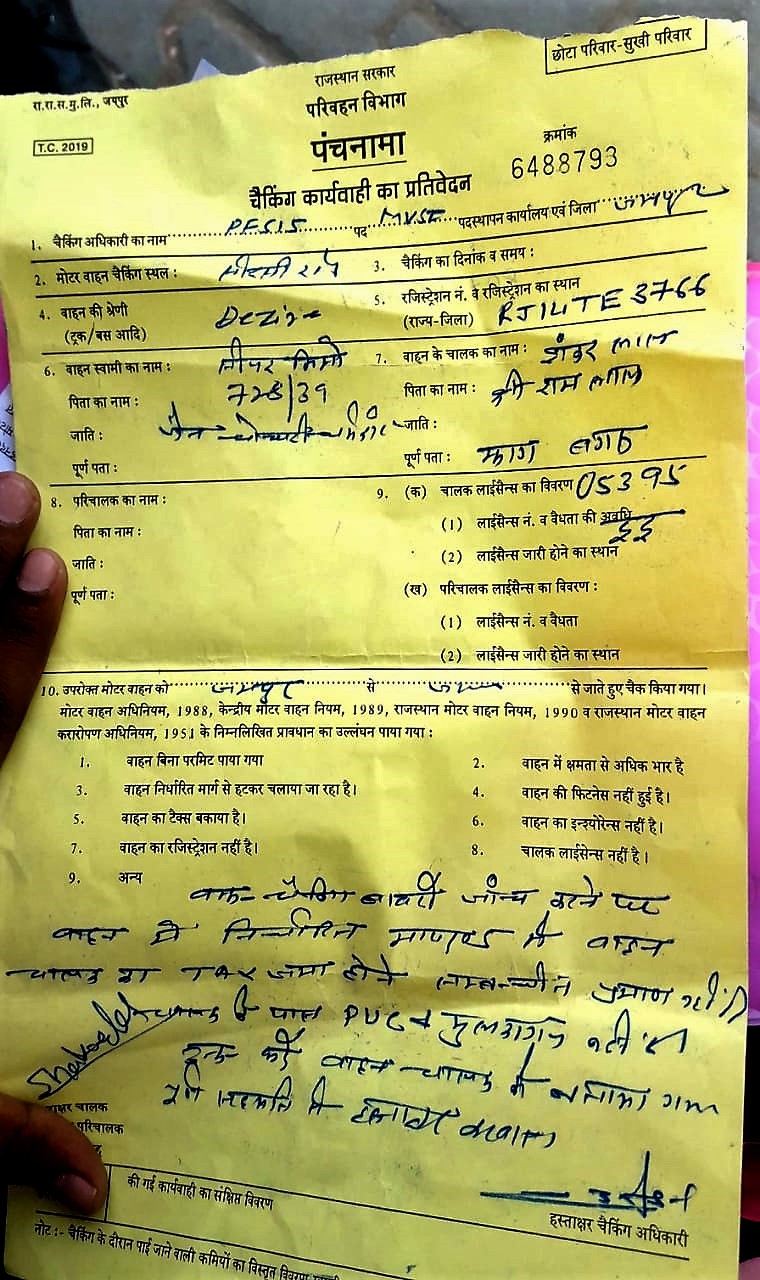 छोटा परिवार-सुखी परिवार
रा.रा.स.मु.लि., जयपुर
राजस्थान सरकार
परिवहन विभाग
T.C. 2019
पंचनामा
क्रमांक
6488793
चैकिंग कार्यवाही का प्रतिवेदन
1. चैकिंग अधिकारी का नाम PFSIS पद MVSI पदस्थापन कार्यालय एवं जिला जयपुर
2. मोटर वाहन चैकिंग स्थल : 3. चैकिंग का दिनांक व समय :
4. वाहन की श्रेणी Dezire 5. रजिस्ट्रेशन नं. व रजिस्ट्रेशन का स्थान
(ट्रक/बस आदि) (राज्य-जिला) RJ14TE3766
6. वाहन स्वामी का नाम : 7. वाहन के चालक का नाम : शंकर लाल
पिता का नाम : 728/39 पिता का नाम : श्री राम लाल
जाति : जाति :
पूर्ण पता : पूर्ण पता :
8. परिचालक का नाम : 9. (क) चालक लाईसैन्स का विवरण 05395
पिता का नाम : (1) लाईसैन्स नं. व वैधता की अवधि
जाति : (2) लाईसैन्स जारी होने का स्थान
पूर्ण पता : (ख) परिचालक लाईसैन्स का विवरण :
(1) लाईसैन्स नं. व वैधता
(2) लाईसैन्स जारी होने का स्थान
10. उपरोक्त मोटर वाहन को जयपुर से से जाते हुए चैक किया गया।
मोटर वाहन अधिनियम, 1988, केन्द्रीय मोटर वाहन नियम, 1989, राजस्थान मोटर वाहन नियम, 1990 व राजस्थान मोटर वाहन
करारोपण अधिनियम, 1951 के निम्नलिखित प्रावधान का उल्लंघन पाया गया :
1. वाहन बिना परमिट पाया गया 2. वाहन में क्षमता से अधिक भार है
3. वाहन निर्धारित मार्ग से हटकर चलाया जा रहा है। 4. वाहन की फिटनेस नहीं हुई है।
5. वाहन का टैक्स बकाया है। 6. वाहन का इन्श्योरेन्स नहीं है।
7. वाहन का रजिस्ट्रेशन नहीं है। 8. चालक लाईसेन्स नहीं है।
9. अन्य
चैकिंग जाँच करने पर
वाहन में निर्धारित में वाहन
चालक का TAX जमा होने सम्बन्धी प्रमाण नहीं
चालक के पास PUC नहीं
को वाहन चालक को गया
हस्ताक्षर
चालक
परिचालक
की गई कार्यवाही का संक्षिप्त विवरण
हस्ताक्षर चैकिंग अधिकारी
नोट :- चैकिंग के दौरान पाई जाने वाली कमियों का विस्तृत विवरण